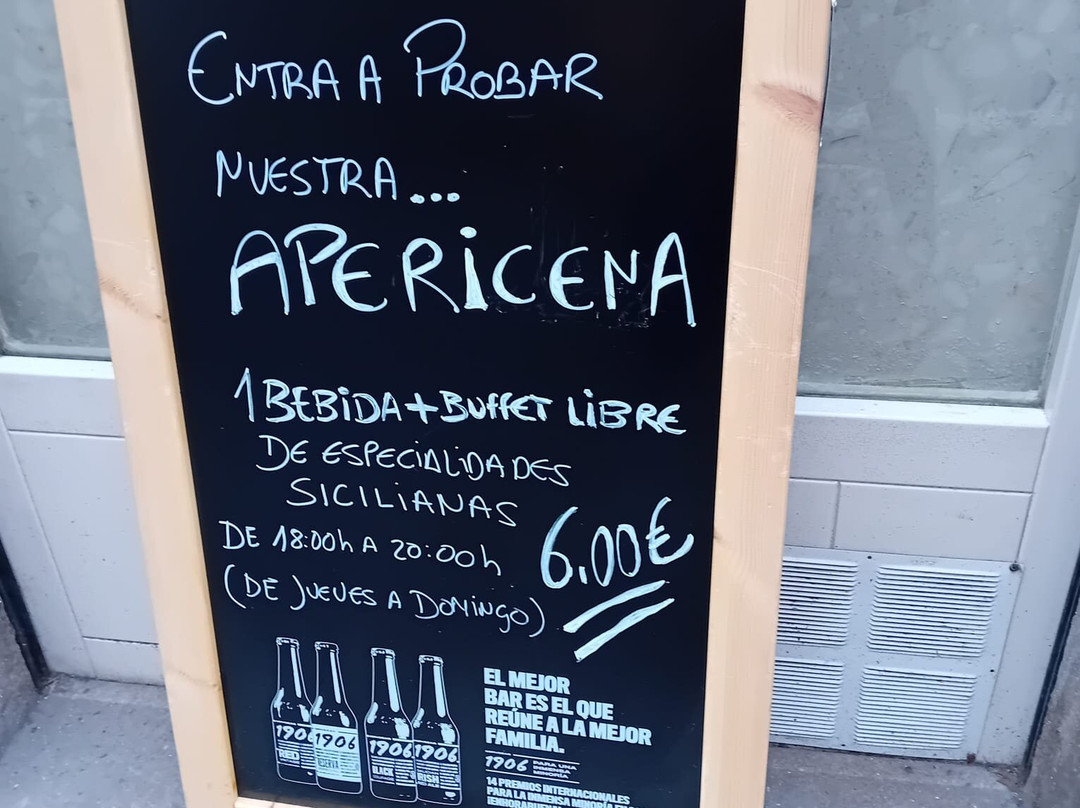 ENTRA A PROBAR
NUESTRA...
APERICENA
1 BEBIDA + BUFFET LIBRE
DE ESPECIALIDADES
SICILIANAS
6.00€
DE 18:00h A 20:00h
(DE JUEVES A DOMINGO)
1906
RED
1906
RESERVA
1906
BLACK
1906
IRISH
EL MEJOR
BAR ES EL QUE
REÚNE A LA MEJOR
FAMILIA.
1906 PARA UNA
INMENSA
MINORÍA
14 PREMIOS INTERNACIONALES
PARA LA INMENSA MINORÍA